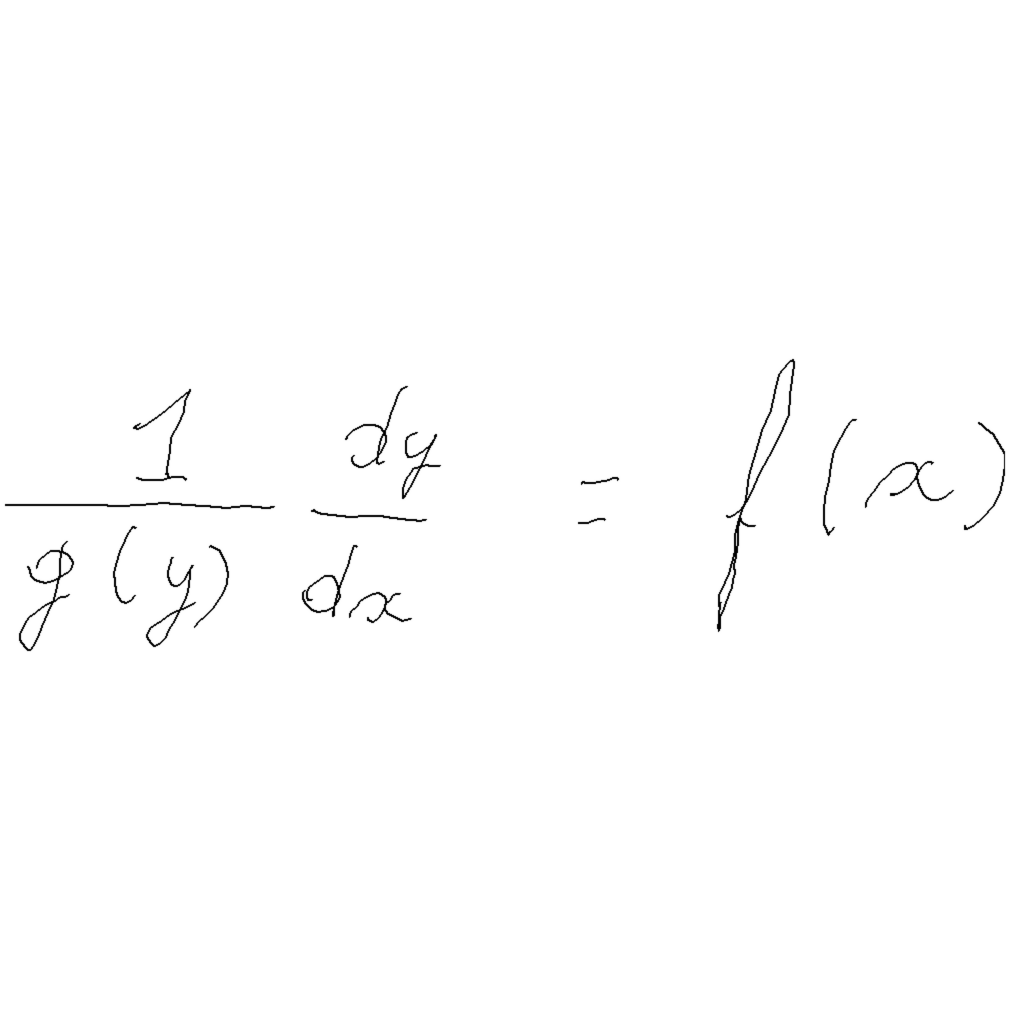 \frac{1}{g(y)} \frac{dy}{dx} = f(x)